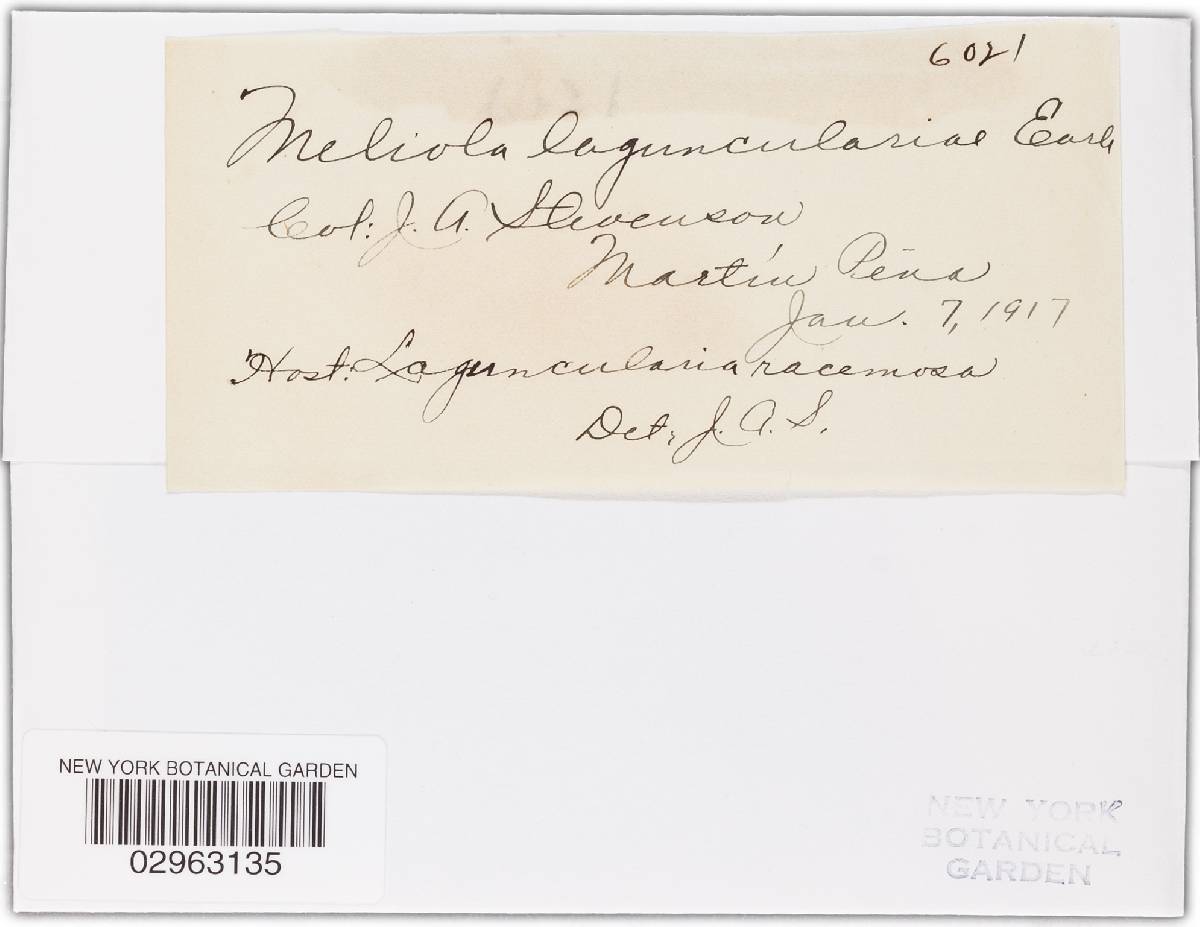 6021
Meliola lagunculariae Earle
Col: J. A. Stevenson
Martín Peña
Jan. 7, 1917
Host: Laguncularia racemosa
Det; J. A. S.
NEW YORK BOTANICAL GARDEN
02963135
NEW YORK
BOTANICAL
GARDEN